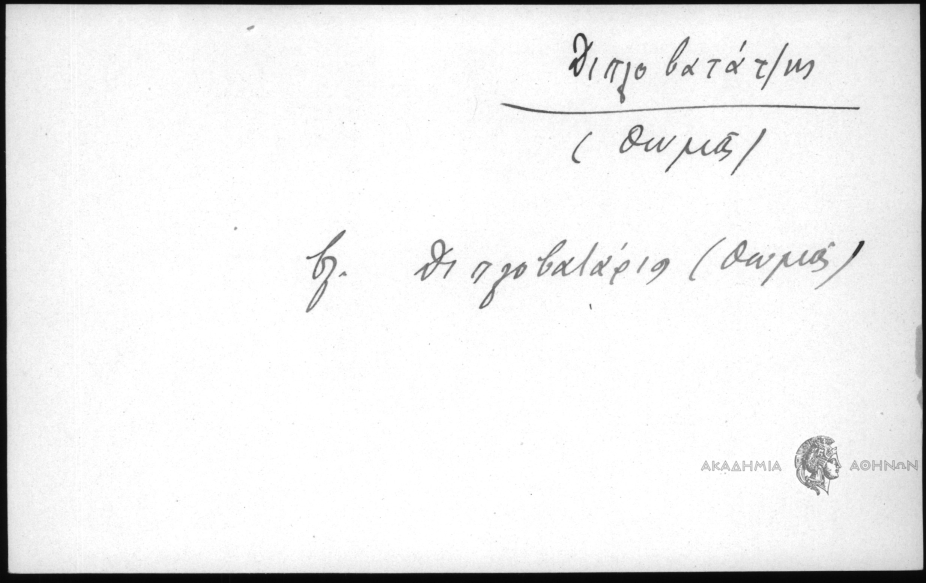 Διπλοβατάτζης
(Θωμᾶς)
βλ. Διπλοβατάρις (Θωμᾶς)
ΑΚΑΔΗΜΙΑ ΑΘΗΝΩΝ